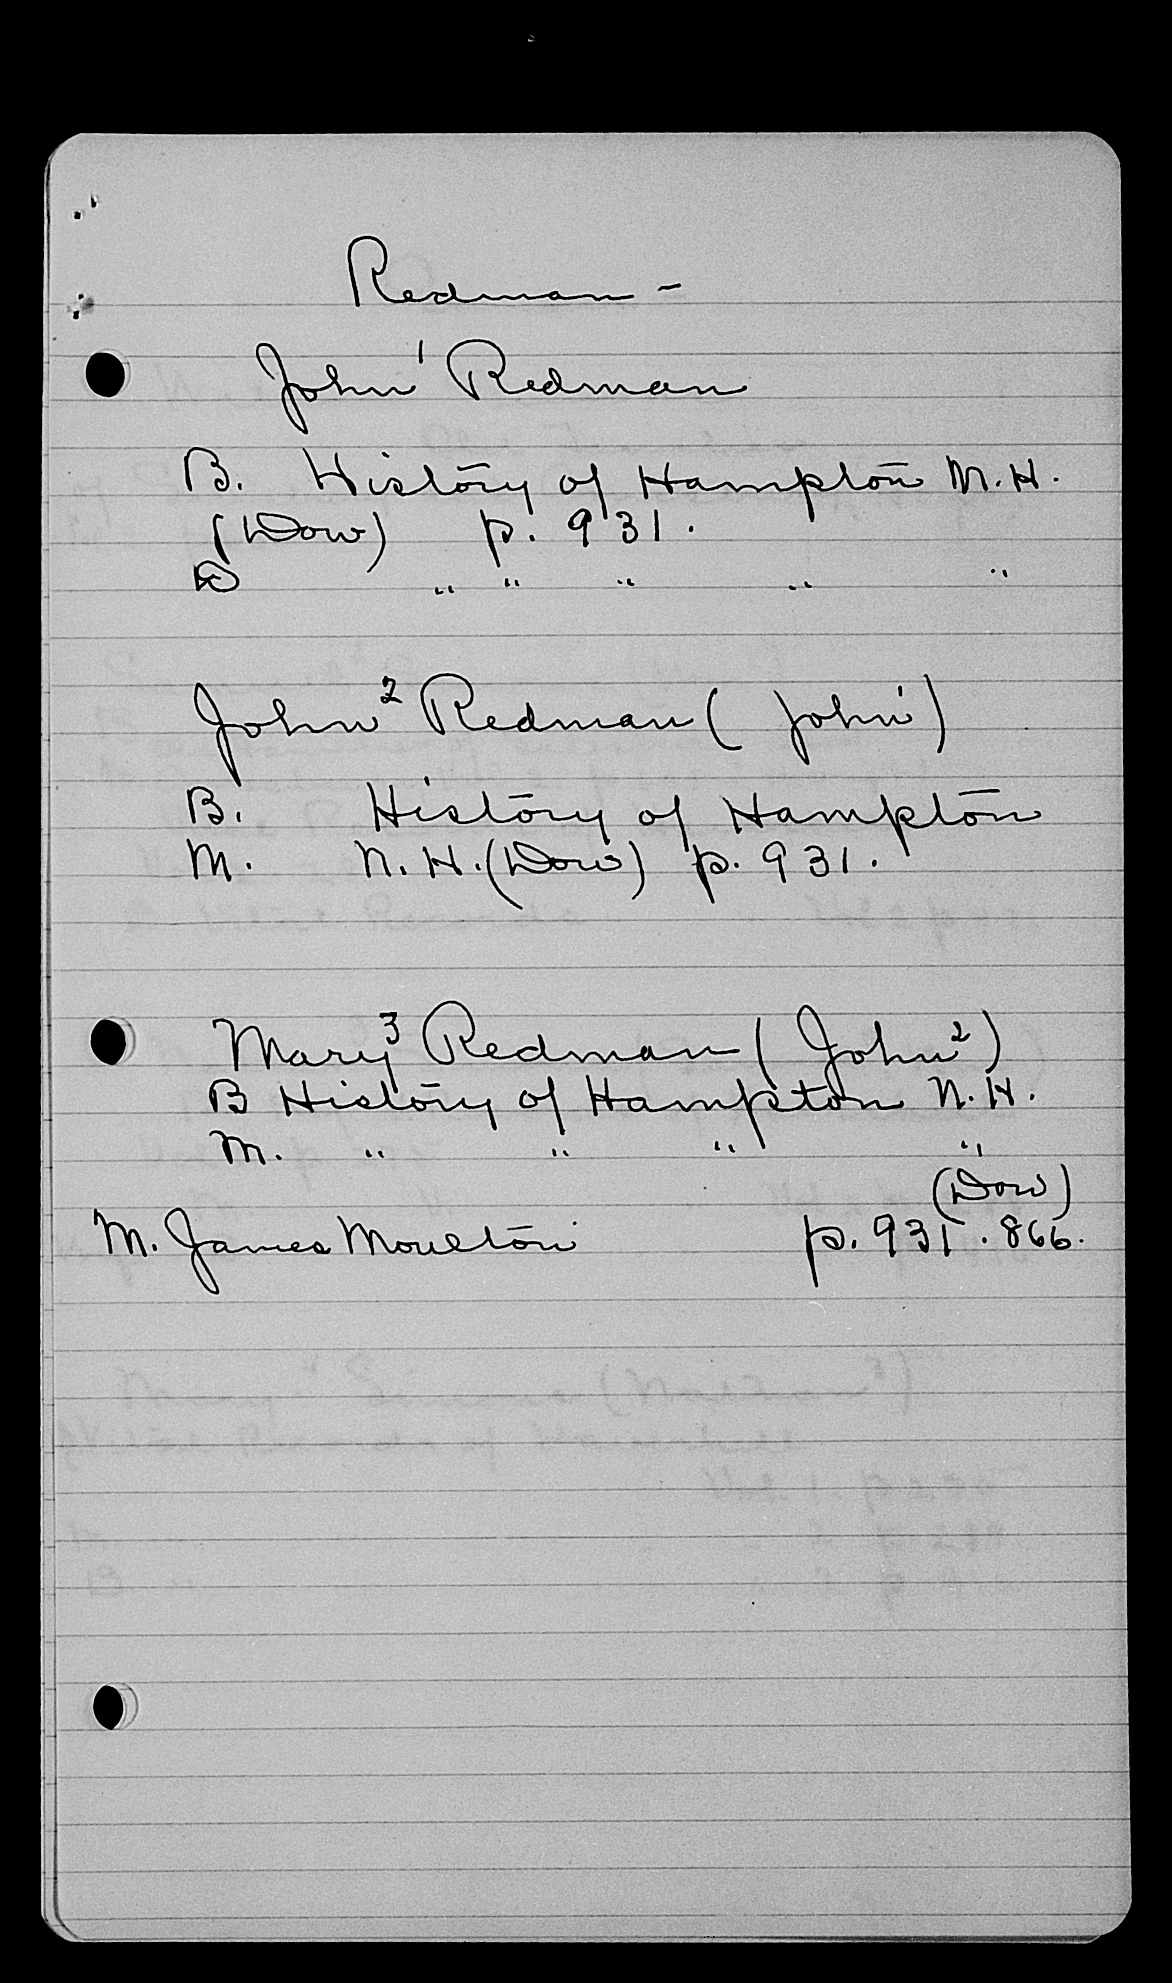 Redman -
John¹ Redman
B. History of Hampton N.H.
(Dow) p. 931.
D " " " " "
John² Redman ( John¹)
B. History of Hampton
M. N.H. (Dow) p. 931.
Mary³ Redman ( John²)
B History of Hampton N.H.
M. " " " "
(Dow)
M. James Moulton p. 931. 866.